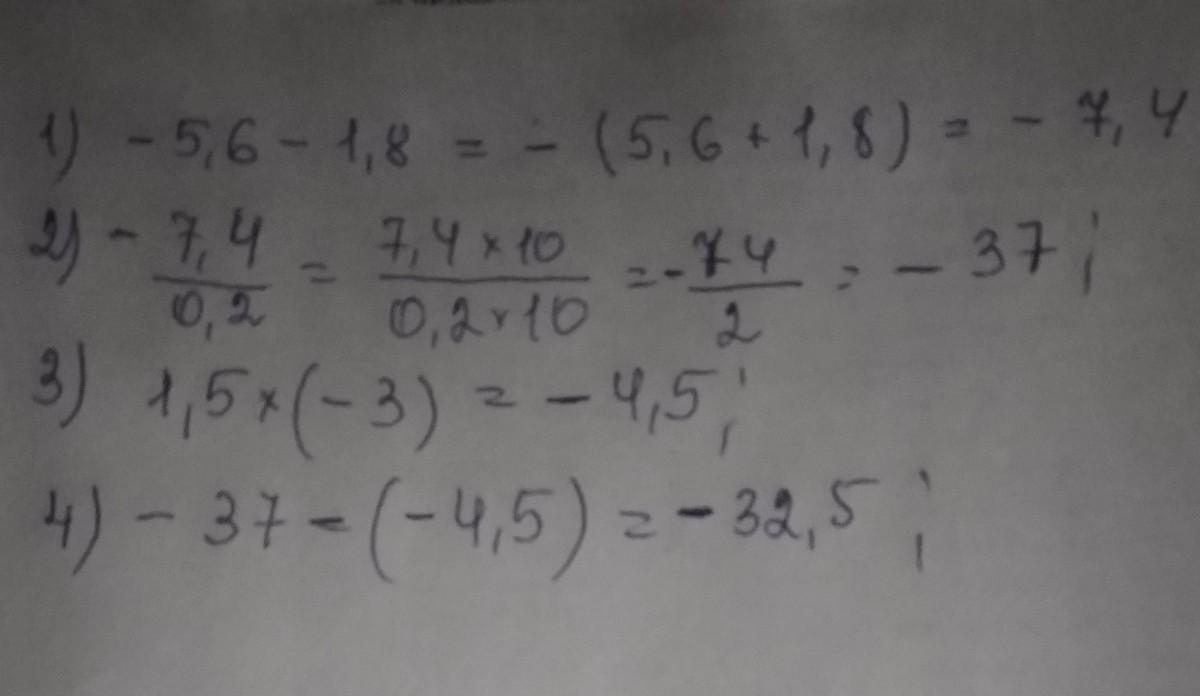 1) - 5,6 - 1,8 = - (5,6 + 1,8) = - 7,4
2) - 7,4/0,2 = 7,4 × 10/0,2 × 10 = - 74/2 = - 37;
3) 1,5 × (- 3) = - 4,5;
4) - 37 - (- 4,5) = - 32,5;